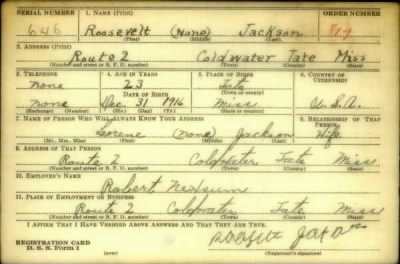 SERIAL NUMBER 1. NAME (Print) ORDER NUMBER
646 Roosevelt (None) Jackson
(First) (Middle) (Last)
2. ADDRESS (Print)
Route 2 Coldwater Tate Miss
(Number and street or R. F. D. number) (Town) (County) (State)
3. TELEPHONE 4. AGE IN YEARS 5. PLACE OF BIRTH 6. COUNTRY OF CITIZENSHIP
None 23 Tate
DATE OF BIRTH (Town or county)
None Dec. 31 1916 Miss U.S.A.
(Exchange) (Number) (Mo.) (Day) (Yr.) (State or country)
7. NAME OF PERSON WHO WILL ALWAYS KNOW YOUR ADDRESS 8. RELATIONSHIP OF THAT PERSON
(None) Jackson Wife
(Mr., Mrs., Miss) (First) (Middle) (Last)
9. ADDRESS OF THAT PERSON
Route 2 Coldwater Tate Miss
(Number and street or R. F. D. number) (Town) (County) (State)
10. EMPLOYER'S NAME
Robert Newsum
11. PLACE OF EMPLOYMENT OR BUSINESS
Route 2 Coldwater Tate Miss
(Number and street or R. F. D. number) (Town) (County) (State)
I AFFIRM THAT I HAVE VERIFIED ABOVE ANSWERS AND THAT THEY ARE TRUE.
REGISTRATION CARD
D. S. S. Form 1 (over) (Registrant's signature)